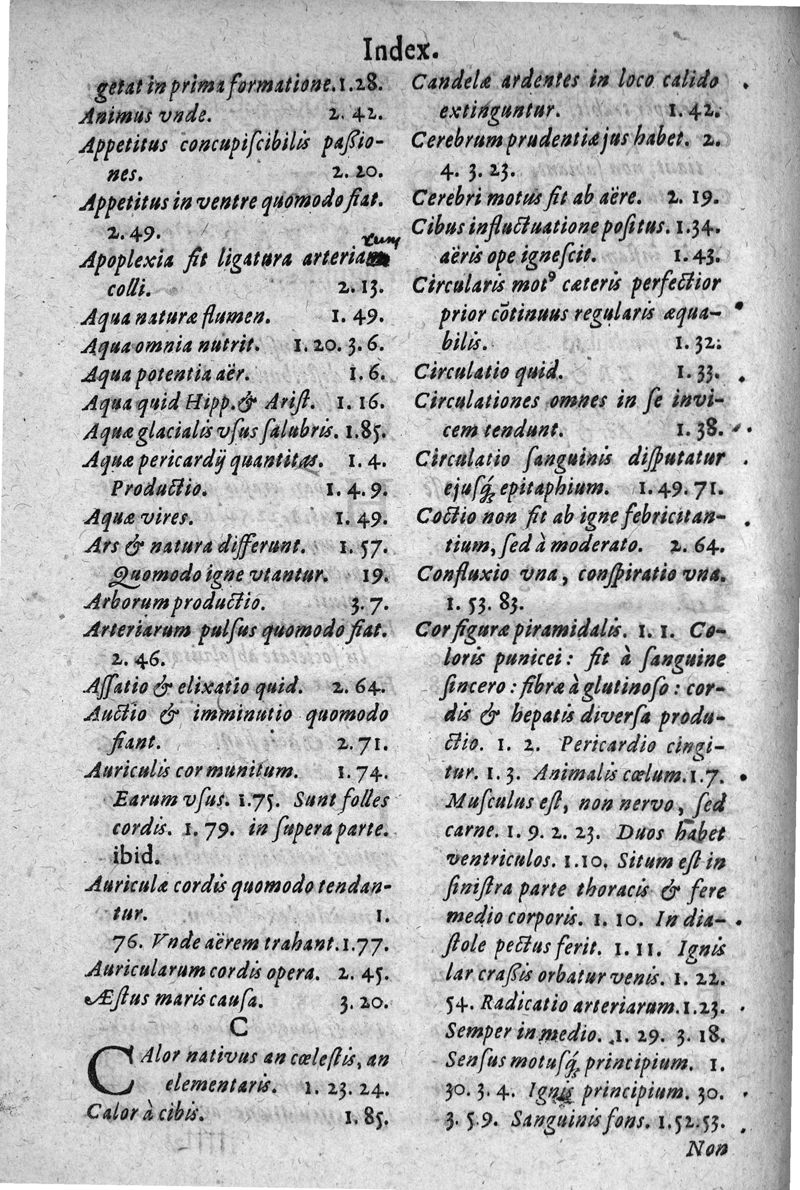 Index.
getat in prima formatione. 1. 28.
Animus vnde. 2. 42.
Appetitus concupiſcibilis paßio-
nes. 2. 20.
Appetitus in ventre quomodo fiat.
2. 49.
Apoplexia fit ligatura arteriarum
colli. 2. 13.
Aqua naturæ flumen. 1. 49.
Aqua omnia nutrit. 1. 20. 3. 6.
Aqua potentia aër. 1. 6.
Aqua quid Hipp. & Ariſt. 1. 16.
Aquæ glacialis vſus ſalubris. 1. 85.
Aquæ pericardij quantitas. 1. 4.
Productio. 1. 4. 9.
Aquæ vires. 1. 49.
Ars & natura differunt. 1. 57.
Quomodo igne vtantur. 19.
Arborum productio. 3. 7.
Arteriarum pulſus quomodo fiat.
2. 46.
Aſſatio & elixatio quid. 2. 64.
Auctio & imminutio quomodo
fiant. 2. 71.
Auriculis cor munitum. 1. 74.
Earum vſus. 1. 75. Sunt folles
cordis. 1. 79. in ſupera parte.
ibid.
Auriculæ cordis quomodo tendan-
tur. 1.
76. Vnde aërem trahant. 1. 77.
Auricularum cordis opera. 2. 45.
Æſtus maris cauſa. 3. 20.
C
CAlor nativus an cœleſtis, an
elementaris. 1. 23. 24.
Calor à cibis. 1. 85.
Candelæ ardentes in loco calido
extinguntur. 1. 42.
Cerebrum prudentiæ jus habet. 2.
4. 3. 23.
Cerebri motus fit ab aëre. 2. 19.
Cibus in fluctuatione poſitus. 1. 34.
aëris ope igneſcit. 1. 43.
Circularis motꝰ cæteris perfectior
prior cõtinuus regularis æqua-
bilis. 1. 32.
Circulatio quid. 1. 33.
Circulationes omnes in ſe invi-
cem tendunt. 1. 38.
Circulatio ſanguinis diſputatur
ejuſq́ꝫ epitaphium. 1. 49. 71.
Coctio non fit ab igne febricitan-
tium, ſed à moderato. 2. 64.
Confluxio vna, conſpiratio vna.
1. 53. 83.
Cor figuræ piramidalis. 1. 1. Co-
loris punicei: fit à ſanguine
ſincero: fibræ à glutinoſo: cor-
dis & hepatis diverſa produ-
ctio. 1. 2. Pericardio cingi-
tur. 1. 3. Animalis cœlum. 1. 7.
Muſculus eſt, non nervo, ſed
carne. 1. 9. 2. 23. Duos habet
ventriculos. 1. 10. Situm eſt in
ſiniſtra parte thoracis & fere
medio corporis. 1. 10. In dia-
ſtole pectus ferit. 1. 11. Ignis
lar craßis orbatur venis. 1. 22.
54. Radicatio arteriarum. 1. 23.
Semper in medio. 1. 29. 3. 18.
Senſus motuſq́ꝫ principium. 1.
30. 3. 4. Ignis principium. 30.
3. 5. 9. Sanguinis fons. 1. 52. 53.
Non